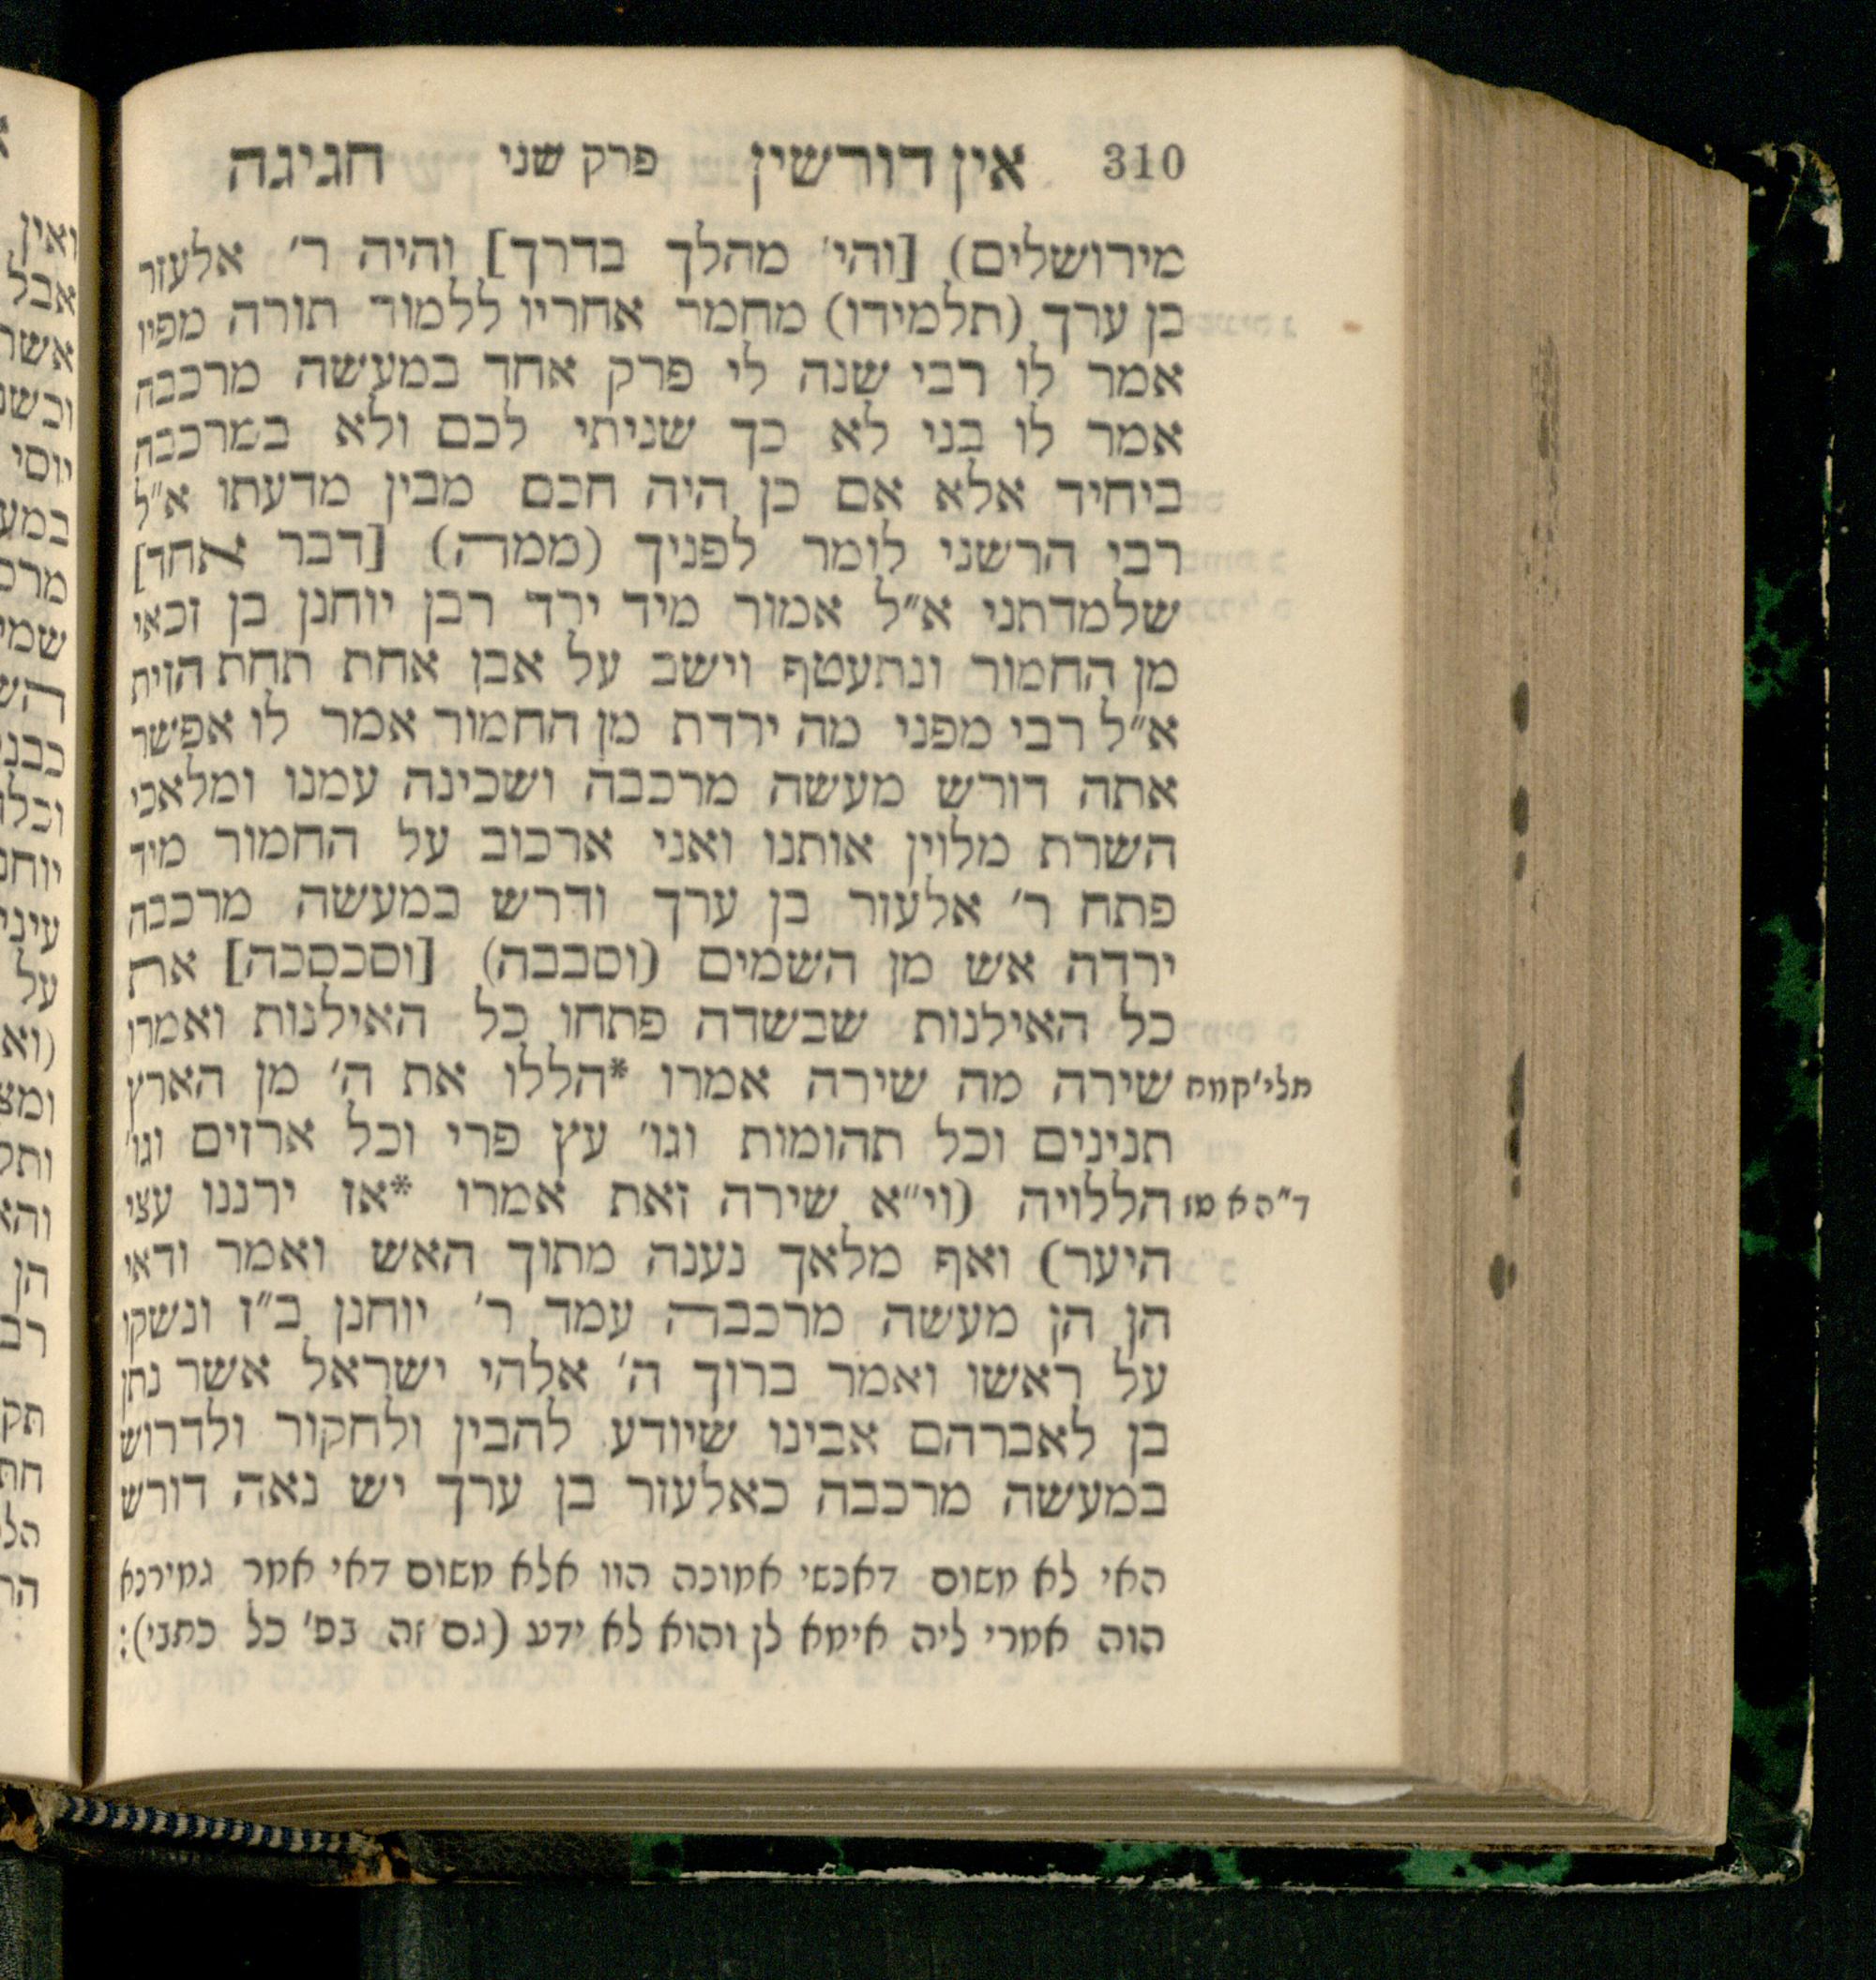 310 אין דורשין פרק שני חגיגה
מירושלים) [והי' מהלך בדרך] והיה ר' אלעזר
בן ערך (תלמידו) מחמר אחריו ללמוד תורה מפיו
אמר לו רבי שנה לי פרק אחד במעשה מרכבה
אמר לו בני לא כך שניתי לכם ולא במרכבה
ביחיד אלא אם כן היה חכם מבין מדעתו א"ל
רבי הרשני לומר לפניך (ממה) [דבר אחד]
שלמדתני א"ל אמור מיד ירד רבן יוחנן בן זכאי
מן החמור ונתעטף וישב על אבן אחת תחת הזית
א"ל רבי מפני מה ירדת מן החמור אמר לו אפשר
אתה דורש מעשה מרכבה ושכינה עמנו ומלאכי
השרת מלוין אותנו ואני ארכוב על החמור מיד
פתח ר' אלעזר בן ערך ודרש במעשה מרכבה
ירדה אש מן השמים (וסבבה) [וסכסכה] את
כל האילנות שבשדה פתחו כל האילנות ואמרו
תלי' קמח שירה מה שירה אמרו *הללו את ה' מן הארץ
תנינים וכל תהומות וגו' עץ פרי וכל ארזים וגו'
ד"הא טז הללויה (וי"א שירה זאת אמרו *אז ירננו עצי
היער) ואף מלאך נענה מתוך האש ואמר ודאי
הן הן מעשה מרכבה עמד ר' יוחנן ב"ז ונשקו
על ראשו ואמר ברוך ה' אלהי ישראל אשר נתן
בן לאברהם אבינו שיודע להבין ולחקור ולדרוש
במעשה מרכבה כאלעזר בן ערך יש נאה דורש
האי לא משום דאנשי אמונה הוו אלא משום דאי אמר גמירנא
הוה אמרי ליה אימא לן והוא לא ידע (גם זה בפ' כל כתבי):